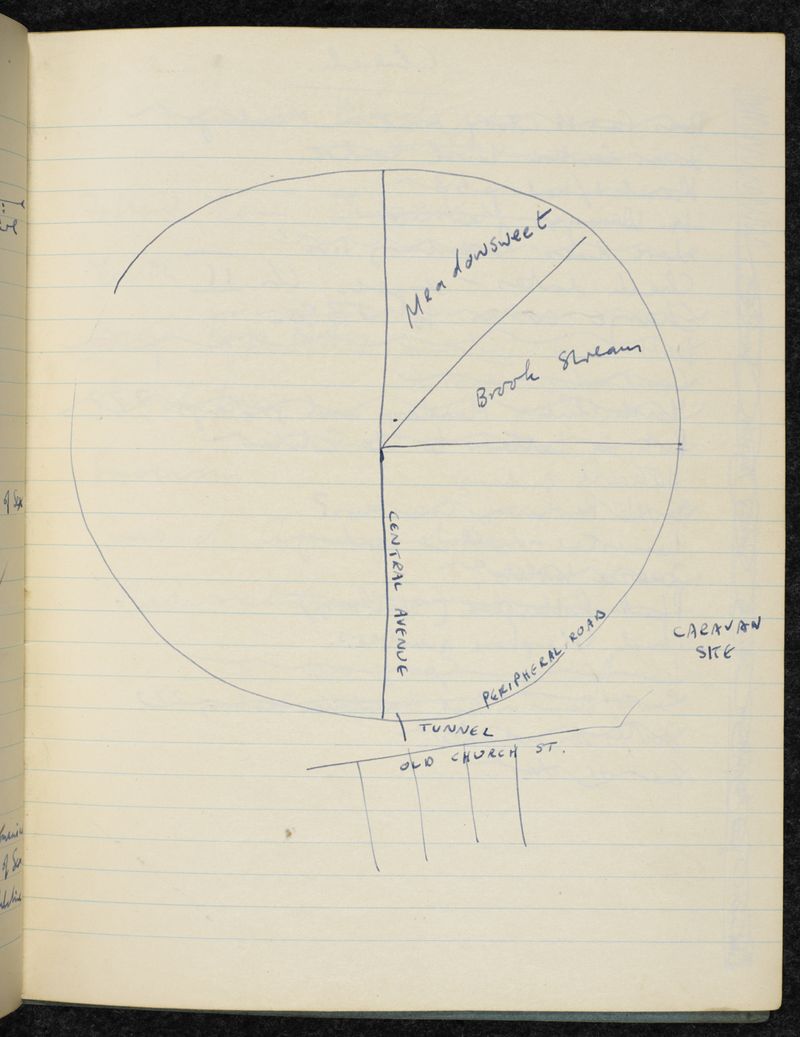 Meadowsweet
Brook Stream
CENTRAL AVENUE
PERIPHERAL ROAD
CARAVAN
SITE
TUNNEL
OLD CHURCH ST.
of Sex